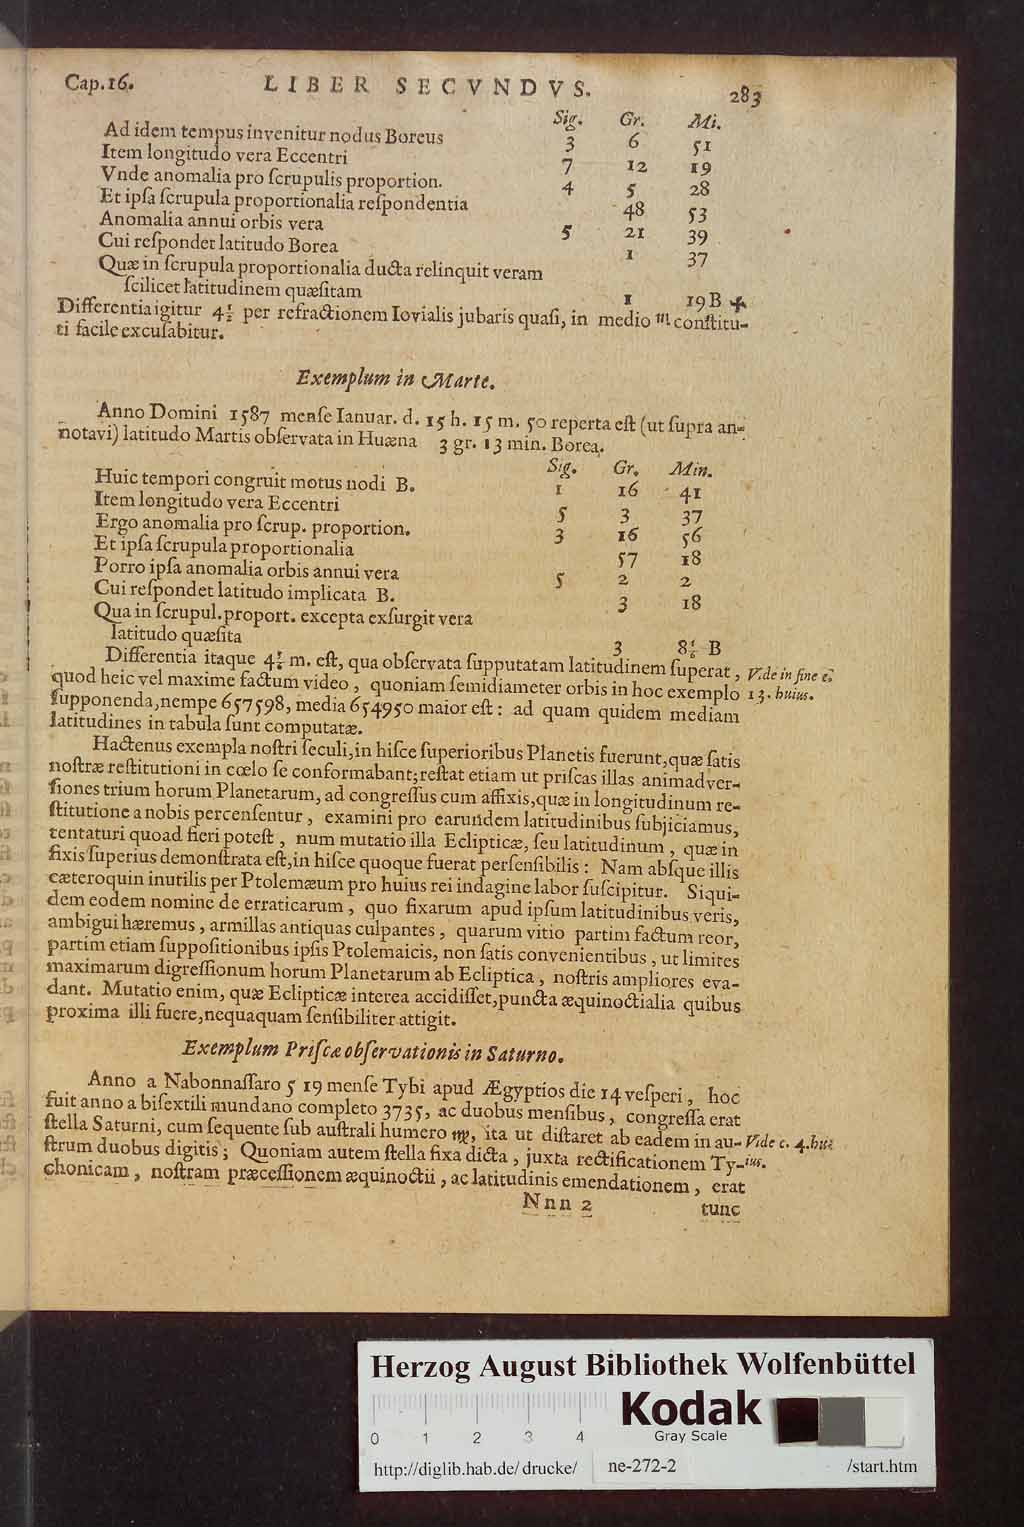 Cap. 16. LIBER SECVNDVS. 283
Sig. Gr. Mi.
Ad idem tempus invenitur nodus Boreus 3 6 51
Item longitudo vera Eccentri 7 12 19
Vnde anomalia pro ſcrupulis proportion. 4 5 28
Et ipſa ſcrupula proportionalia reſpondentia 48 53
Anomalia annui orbis vera 5 21 39
Cui reſpondet latitudo Borea 1 37
Quæ in ſcrupula proportionalia ducta relinquit veram
ſcilicet latitudinem quæſitam 1 19 B
Differentia igitur 4½ per refractionem Iovialis jubaris quaſi, in medio ♏ conſtitu-
ti facile excuſabitur.
Exemplum in Marte.
Anno Domini 1587 menſe Ianuar. d. 15 h. 15 m. 50 reperta eſt (ut ſupra an-
notavi) latitudo Martis obſervata in Huæna 3 gr. 13 min. Borea.
Sig. Gr. Min.
Huic tempori congruit motus nodi B. 1 16 41
Item longitudo vera Eccentri 5 3 37
Ergo anomalia pro ſcrup. proportion. 3 16 56
Et ipſa ſcrupula proportionalia 57 18
Porro ipſa anomalia orbis annui vera 5 2 2
Cui reſpondet latitudo implicata B. 3 18
Qua in ſcrupul. proport. excepta exſurgit vera
latitudo quæſita 3 8⅙ B
Differentia itaque 4⅚ m. eſt, qua obſervata ſupputatam latitudinem ſuperat, Vide in fine c.
quod heic vel maxime factum video, quoniam ſemidiameter orbis in hoc exemplo 13. huius.
ſupponenda, nempe 657598, media 654950 maior eſt: ad quam quidem mediam
latitudines in tabula ſunt computatæ.
Hactenus exempla noſtri ſeculi, in hiſce ſuperioribus Planetis fuerunt, quæ ſatis
noſtræ reſtitutioni in cœlo ſe conformabant; reſtat etiam ut priſcas illas animadver-
ſiones trium horum Planetarum, ad congreſſus cum affixis, quæ in longitudinum re-
ſtitutione a nobis percenſentur, examini pro earundem latitudinibus ſubjiciamus,
tentaturi quoad fieri poteſt, num mutatio illa Eclipticæ, ſeu latitudinum, quæ in
fixis ſuperius demonſtrata eſt, in hiſce quoque fuerat perſenſibilis: Nam abſque illis
cæteroquin inutilis per Ptolemæum pro huius rei indagine labor ſuſcipitur. Siqui-
dem eodem nomine de erraticarum, quo fixarum apud ipſum latitudinibus veris,
ambigui hæremus, armillas antiquas culpantes, quarum vitio partim factum reor,
partim etiam ſuppoſitionibus ipſis Ptolemaicis, non ſatis convenientibus, ut limites
maximarum digreſſionum horum Planetarum ab Ecliptica, noſtris ampliores eva-
dant. Mutatio enim, quæ Eclipticæ interea accidiſſet, puncta æquinoctialia quibus
proxima illi fuere, nequaquam ſenſibiliter attigit.
Exemplum Priſcæ obſervationis in Saturno.
Anno a Nabonnaſſaro 519 menſe Tybi apud Ægyptios die 14 veſperi, hoc
fuit anno a biſextili mundano completo 3735, ac duobus menſibus, congreſſa erat
ſtella Saturni, cum ſequente ſub auſtrali humero ♍, ita ut diſtaret ab eadem in au- Vide c. 4. hu-
ſtrum duobus digitis; Quoniam autem ſtella fixa dicta, juxta rectificationem Ty- ius.
chonicam, noſtram præceſſionem æquinoctii, ac latitudinis emendationem, erat
Nnn 2 tunc
Herzog August Bibliothek Wolfenbüttel
0 1 2 3 4
Kodak
Gray Scale
http://diglib.hab.de/drucke/ ne-272-2 /start.htm